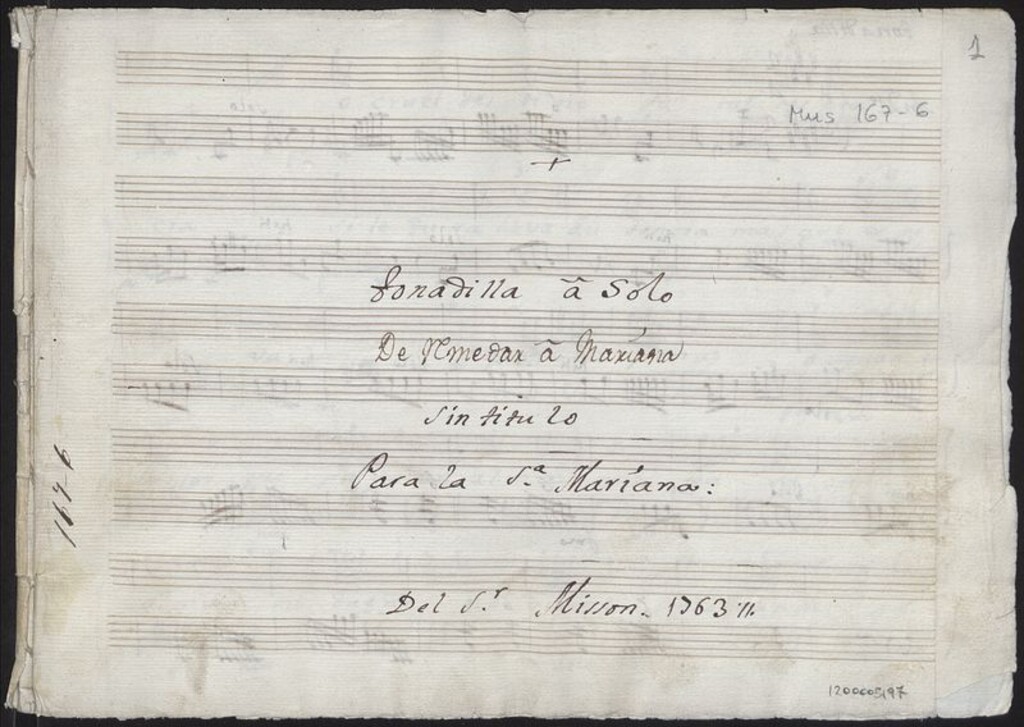 1
Mus 167-6
Tonadilla â Solo
De Remedar â Mariana
sin titulo
Para la S.ª Mariana:
Del S.r Misson. 1763.
167-6
1200005197